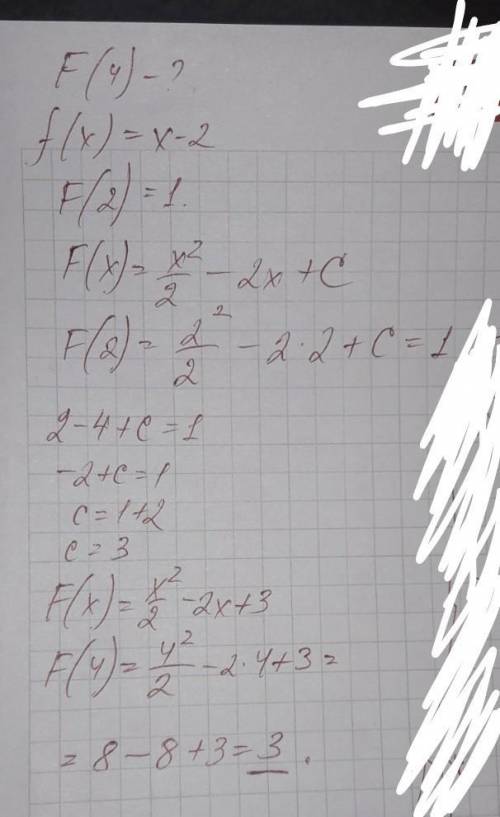 F(4) - ?
f(x) = x - 2
F(2) = 1.
F(x) = x²/2 - 2x + C
F(2) = 2²/2 - 2·2 + C = 1
2 - 4 + c = 1
-2 + c = 1
c = 1 + 2
c = 3
F(x) = x²/2 - 2x + 3
F(4) = 4²/2 - 2·4 + 3 =
= 8 - 8 + 3 = 3.